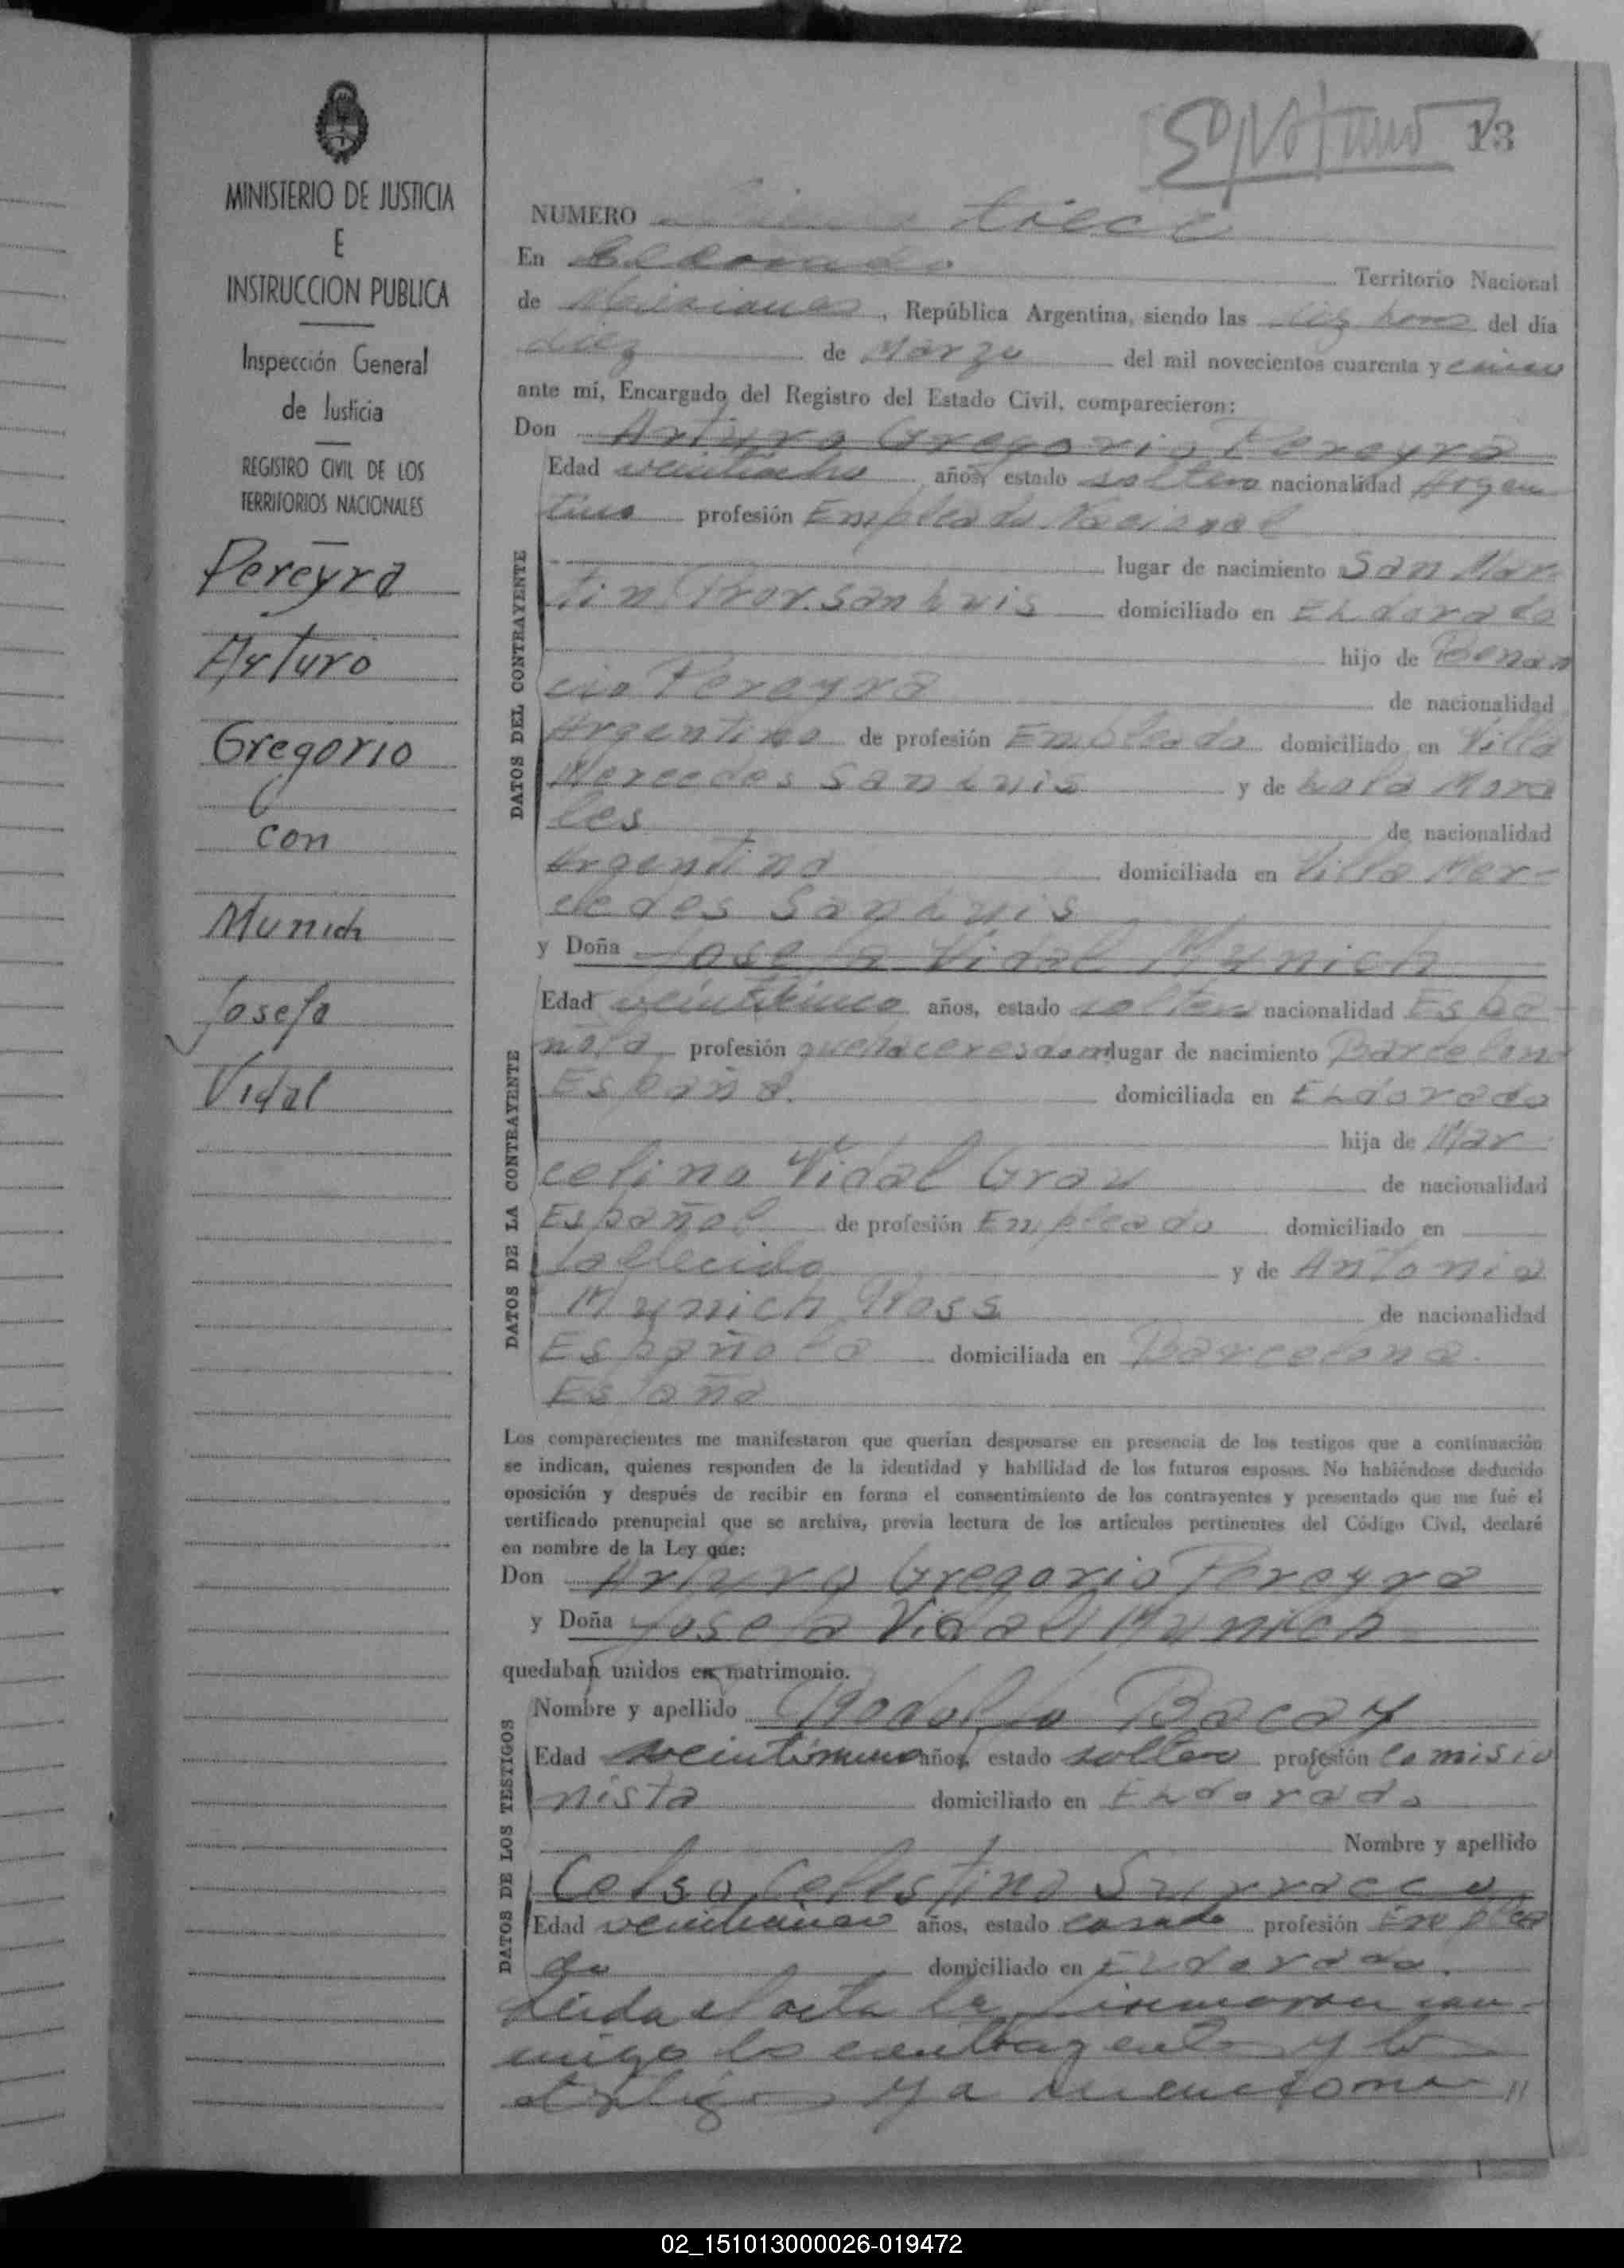 MINISTERIO DE JUSTICIA
E
INSTRUCCION PUBLICA
Inspección General
de Justicia
REGISTRO CIVIL DE LOS
TERRITORIOS NACIONALES
Pereyra
Arturo
Gregorio
con
Munich
Josefa
Vidal
13
NUMERO trece
En Eldorado
Territorio Nacional
de Misiones, República Argentina, siendo las diez horas del día
diez de Marzo del mil novecientos cuarenta y cinco
ante mí, Encargado del Registro del Estado Civil, comparecieron:
Don Arturo Gregorio Pereyra
Edad veintiocho años, estado soltero nacionalidad Argen
tino profesión Empleado Nacional
lugar de nacimiento San Mar-
tin Prov. San Luis domiciliado en ELdorado
hijo de Benan
cio Pereyra
de nacionalidad
Argentino de profesión Empleado domiciliado en Villa
Mercedes San Luis y de Lola Mora
les de nacionalidad
Argentina domiciliada en Villa Mer-
cedes San Luis
y Doña Josefa Vidal Munich
Edad veinticinco años, estado soltera nacionalidad Espa-
ñola profesión quehaceres dom lugar de nacimiento Barcelona
España. domiciliada en ELdorado
hija de Mar
celino Vidal Grau de nacionalidad
Español de profesión Empleado domiciliado en
fallecido y de Antonia
Munich Ross de nacionalidad
Española domiciliada en Barcelona.
España
Los comparecientes me manifestaron que querían desposarse en presencia de los testigos que a continuación
se indican, quienes responden de la identidad y habilidad de los futuros esposos. No habiéndose deducido
oposición y después de recibir en forma el consentimiento de los contrayentes y presentado que me fué el
certificado prenupcial que se archiva, previa lectura de los artículos pertinentes del Código Civil, declaré
en nombre de la Ley que:
Don Arturo Gregorio Pereyra
y Doña Josefa Vidal Munich
quedaban unidos en matrimonio.
Nombre y apellido Rodolfo Bacay
Edad veintinueve años, estado soltero profesión comisio
nista domiciliado en ELdorado
Nombre y apellido
Celso Celestino Surracco
Edad veinticinco años, estado casado profesión Emplea
do domiciliado en ELdorado.
Leida el acta la firmaron con-
migo los contrayentes y los
testigos ya mencionados
DATOS DEL CONTRAYENTE
DATOS DE LA CONTRAYENTE
DATOS DE LOS TESTIGOS
02_151013000026-019472